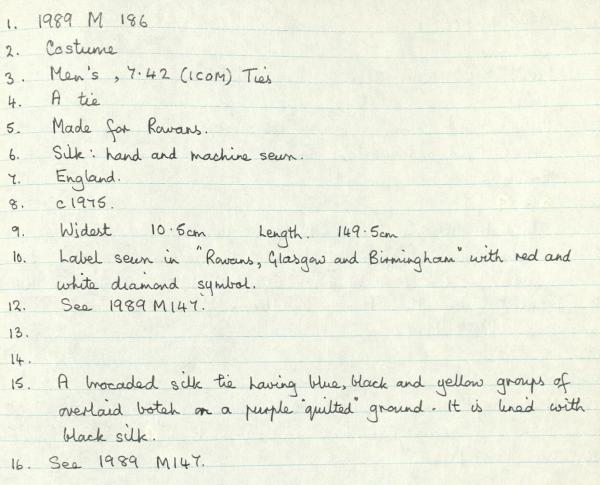 1. 1989 M 186
2. Costume
3. Men's, 7.42 (ICOM) Ties
4. A tie
5. Made for Rowans.
6. Silk: hand and machine sewn.
7. England.
8. c1975.
9. Widest 10.5cm Length. 149.5cm
10. Label sewn in "Rowans, Glasgow and Birmingham" with red and
white diamond symbol.
12. See 1989 M147.
13.
14.
15. A brocaded silk tie having blue, black and yellow groups of
overlaid boteh on a purple "quilted" ground. It is lined with
black silk.
16. See 1989 M147.